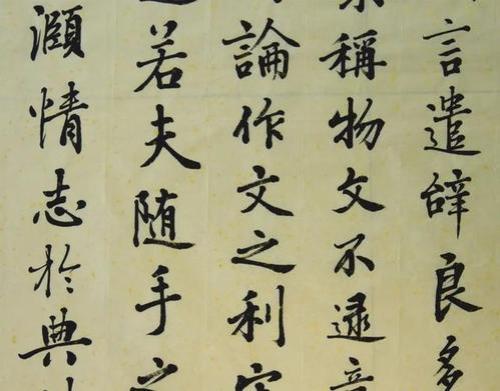 言遣辞良多
稱物文不逮意
論作文之利
若夫随手之
情志於典